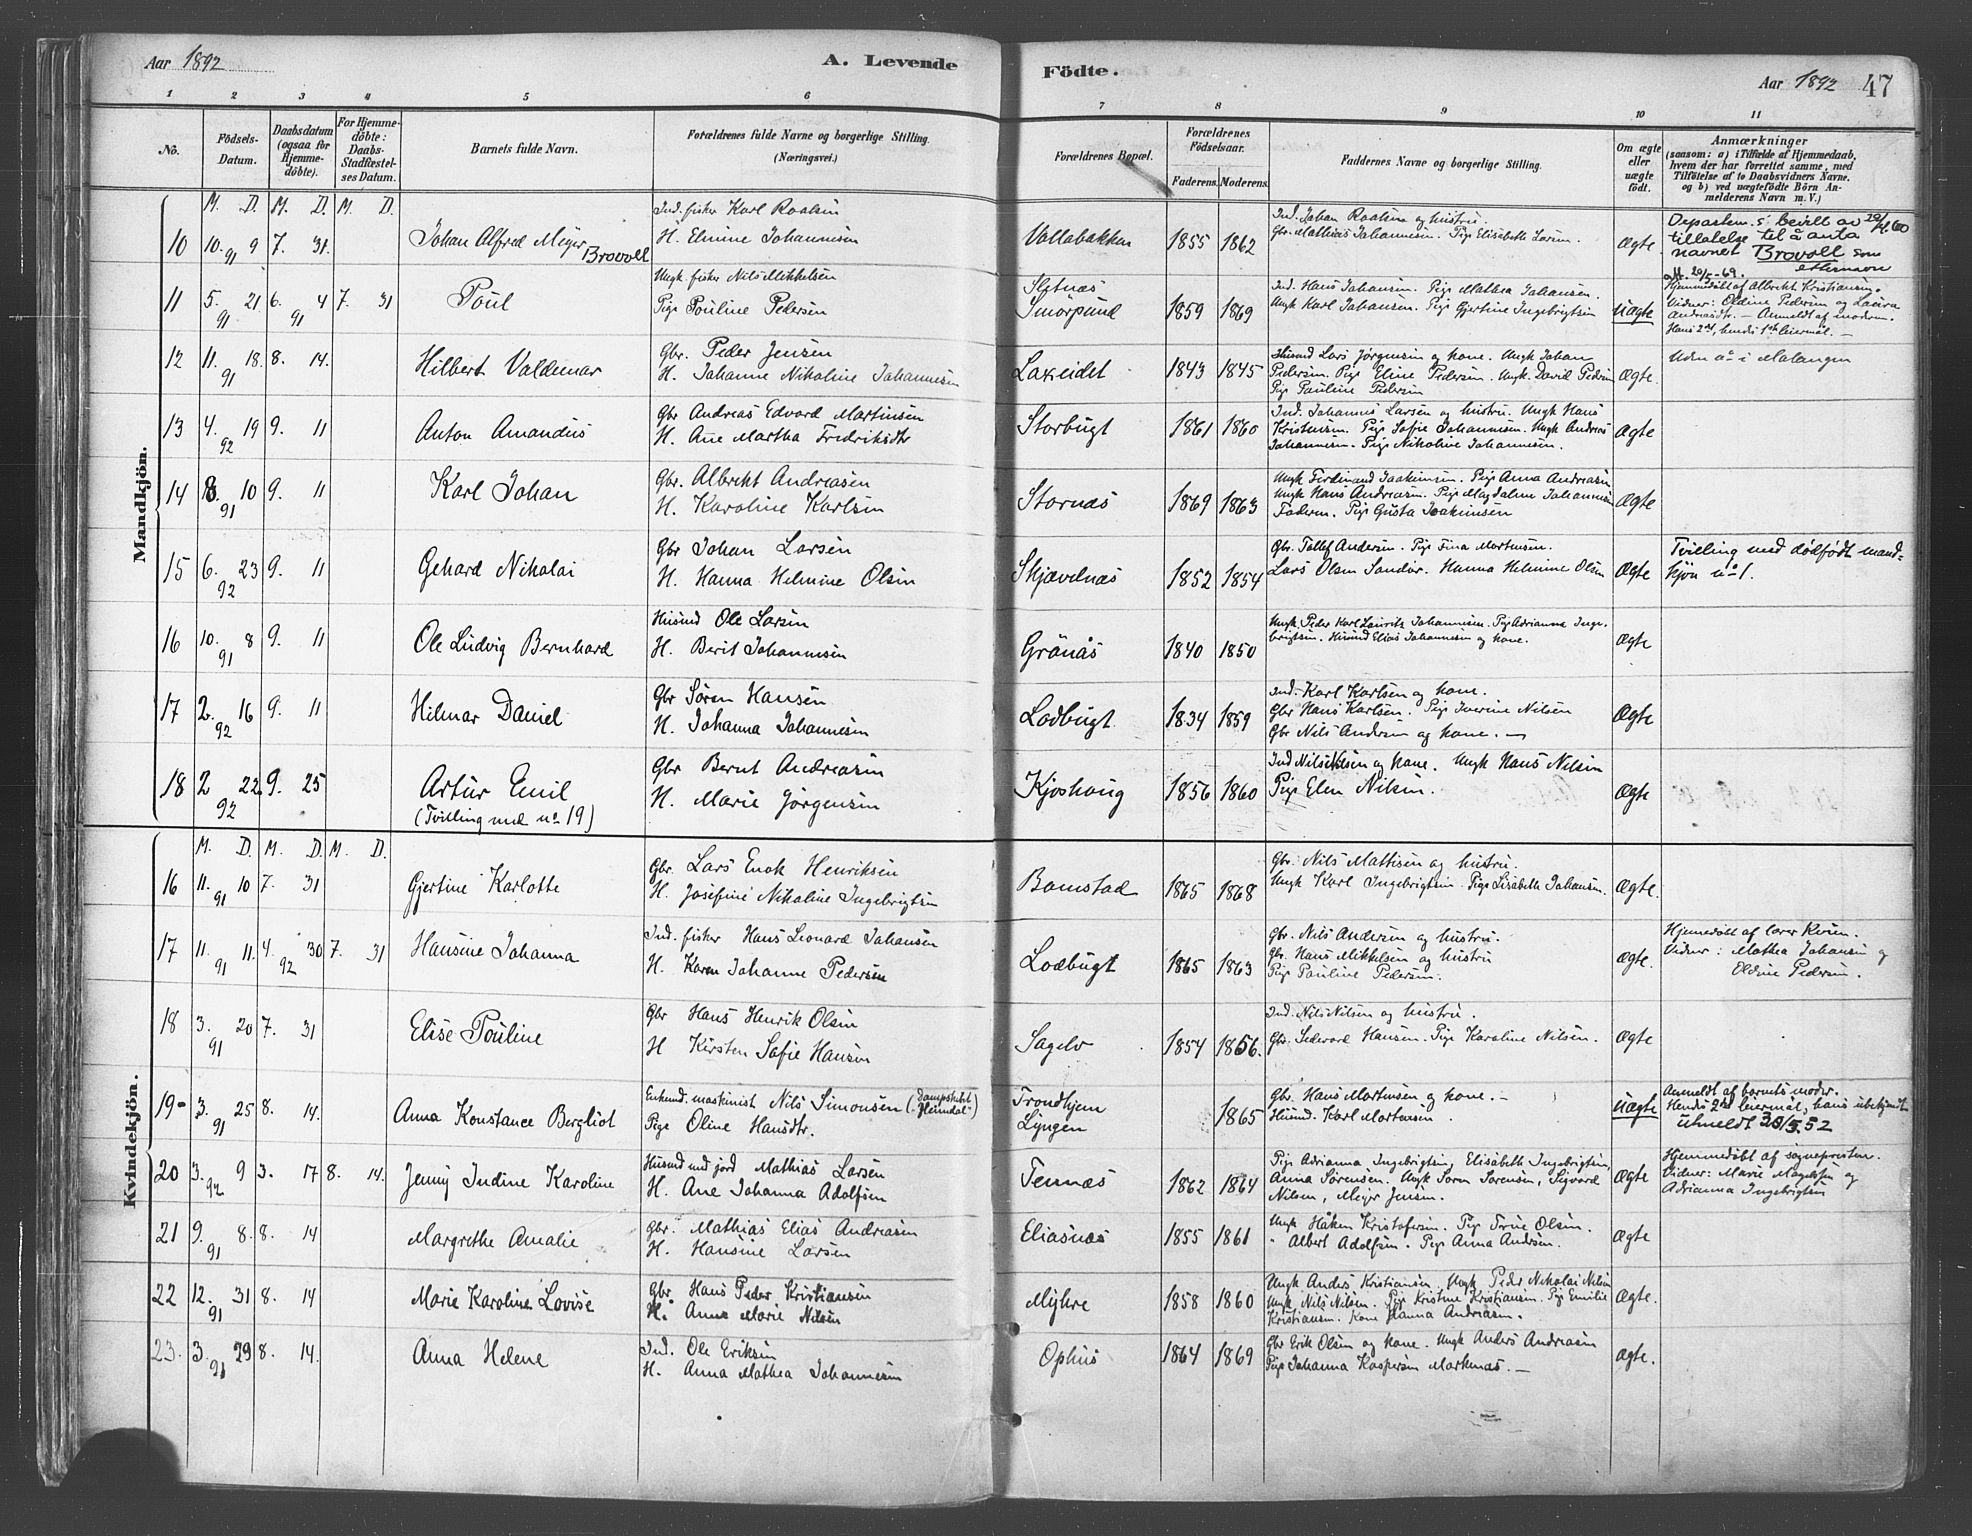 Aar 1892
A. Levende
Födte.
Aar 1892 47
1 2 3 4 5 6 7 8 9 10 11
No.
Födsels-Datum.
Daabsdatum (ogsaa for Hjemmedöbte).
For Hjemmedöbte: Daabs-Stadfæstelses Datum.
Barnets fulde Navn.
Forældrenes fulde Navne og borgerlige Stilling. (Næringsvei.)
Forældrenes Bopæl.
Forældrenes Födselsaar.
Faderens. Moderens.
Faddernes Navne og borgerlige Stilling.
Om ægte eller uægte födt.
Anmærkninger
(saasom: a) i Tilfælde af Hjemmedaab,
hvem der har forrettet samme, med
Tilföielse af to Daabsvidners Navne,
og b) ved uægtefödte Börn Anmelderens Navn m. V.)
Mandkjön.
M. D. M. D. M. D.
10 10. 9 91 7. 31. Johan Alfred Meyer Brovoll
Ind. fisker Karl Roaksen
H. Elmine Johannesen
Vollabakken 1855 1862
Ind. Johan Roaksen og hustru.
Gbr. Mathias Johannesen. Pige Elisabeth Larsen.
Ægte.
Departem.s bevill av 29/4.60
tillatelse til å anta
navnet Brovoll som
etternavn
11 5. 21 91 6. 4 91 7. 31 Poul
Ungk. fisker Nils Mikkelsen
Pige Pouline Pedersen
Sletnæs
Smörpund 1859 1869
Ind. Hans Johansen. Pige Mathea Johansen.
Ungk Karl Johansen. Pige Gjertine Ingebrigtsen
Uægte
20/5-69.
Hjemmedöbt af Albrikt Kristiansen.
Vidner: Oldine Pedersen og Laura
Andreasdtr. - Anmeldt af moderen.
Hans 2det, hendes 1ste leiermål. -
12 11. 18. 91 8. 14. Hilbert Valdemar
Gbr. Peder Jensen
H. Johanne Nikoline Johannesen
Laxeidet 1843 1845
Husmd Lars Jørgensen og kone. Ungk Johan
Pedersen. Pige Eline Pedersen. Ungk. David Pedersen
Pige Pauline Pedersen
Ægte.
Uden no i Malangen
13 4. 19 92 9. 11 Anton Amandus
Gbr Andreas Edvard Martinsen
H. Ane Martha Fredriksdtr
Storbugt 1861 1860
Ind. Johannes Larsen og hustru. Ungk Hans
Kristensen. Pige Sofie Johannesen. Ungk Andreas
Johannesen. Pige Nikoline Johannesen.
Ægte
14 8. 10 91 9. 11 Karl Johan
Gbr. Albrikt Andreasen
H. Karoline Karlsen
Stornæs 1869 1863
Ungk Ferdinand Joakimsen. Pige Anna Andreasen
Ungk Hans Andreasen. Pige Magdalene Johannesen
Faderen. Pige Gusta Joakimsen
Ægte
15 6. 23 92 9. 11 Gehard Nikolai
Gbr Johan Larsen
H. Hanna Helmine Olsen
Skjævelnæs 1852 1854
Gbr. Tollef Andersen. Pige Fina Mortensen.
Lars Olsen Sandør. Hanna Helmine Olsen
Ægte
Tvilling med dødfødt mand-
kjøn no 1.
16 10. 8 91 9. 11 Ole Ludvig Bernhard
Husmd Ole Larsen
H. Berit Johannesen
Grönås 1840 1850
Ungk. Peder Karl Lauritz Johannesen. Pige Adrianna Inge-
brigtsen. Husmd Elias Johannesen og kone.
Ægte
17 2. 16 92 9. 11 Hilmar Daniel
Gbr Sören Hansen
H. Johanna Johannesen
Lodbugt 1834 1859
Ind. Karl Karlsen og kone.
Gbr Hans Karlsen. Pige Iverine Nilsen
Gbr Nils Andersen og kone. -
Ægte
18 2 22. 92 9. 25 Artur Emil
(Tvilling med no 19)
Gbr Bernt Andreasen
H. Marie Jørgensen
Kjoshaug 1856 1860
Ind Nils Nilsen og kone. Ungk Hans Nilsen
Pige Elen Nilsen.
Ægte
Kvindekjön.
M. D. M. D. M. D.
16 11. 10 91 7. 31 Gjertine Karlotte
Gbr. Lars Enok Henriksen
H. Josefine Nikoline Ingebrigtsen
Bomstad 1865 1868
Gbr. Nils Mathisen og hustru.
Ungk Karl Ingebrigtsen. Pige Lisabeth Johansen.
Ægte.
17 11. 11. 91 4. 30 92 7. 31 Hansine Johanna
Ind. fisker Hans Leonard Johansen
H. Karen Johanne Pedersen
Lodbugt 1865 1863
Gbr. Nils Andersen og hustru.
Gbr. Hans Mikkelsen og hustru
Pige Pauline Pedersen.
ægte.
Hjemmedöbt af lærer Kvien.
Vidner: Mathea Johansen og
Oldine Pedersen.
18 3. 20 91 7. 31 Elise Pouline
Gbr Hans Henrik Olsen
H Kirsten Sofie Hansen
Sagelv 1854 1856.
Ind. Nils Nilsen og hustru.
Gbr. Sedevard Hansen. Pige Karoline Nilsen.
Ægte
19 3. 25 91 8. 14. Anna Konstance Bergliot
Enkemd. maskinist Nils Simonsen (Dampskibet "Heimdal")
Pige Oline Hansdtr.
Trondhjem
Lyngen 1865
Gbr. Hans Mortensen og kone. -
Husmd. Karl Mortensen.
Uægte
Anmeldt af barnets moder.
Hendes 2det leiermål, hans ubekjendt
Utmeldt 30/5.52
20 3. 9 92 3. 17 8. 14. Jenny Indine Karoline
Husmd med jord Mathias Larsen
H. Ane Johanna Adolfsen
Tennæs 1862 1864
Pige Adrianna Ingebrigtsen, Elisabeth Ingebrigtsen,
Anna Sørensen. Ungk Søren Sørensen, Sigvard
Nilsen, Meyer Jensen.
Ægte
Hjemmedöbt af sognepresten.
Vidner: Marie Magelsen og
Adrianna Ingebrigtsen
21 9. 8. 91 8. 14 Margrethe Amalie
Gbr. Mathias Elias Andreasen
H. Hansine Larsen
Eliasnæs 1855 1861
Ungk Håken Kristofersen. Pige Trine Olsen.
" Albert Adolfsen. Pige Anna Andersen.
ægte
22 12. 31 91 8. 14 Marie Karoline Lovise
Gbr. Hans Peder Kristiansen
H. Anna Marie Nilsen
Myhre 1858 1860
Ungk Anders Kristiansen. Ungk Peder Nikolai Nilsen
Ungk. Nils Nilsen. Pige Kristine Kristiansen. Pige Emilie
Kristiansen. Kone Hanna Andreasen.
Ægte.
23. 3. 29 91 8. 14. Anna Helene
Ind. Ole Eriksen
H. Anna Mathea Johannesen
Ophus 1864 1869
Gbr Erik Olsen og kone. Ungk Anders Andreasen
Pige Johanna Kaspersen Markenæs. -
ægte.